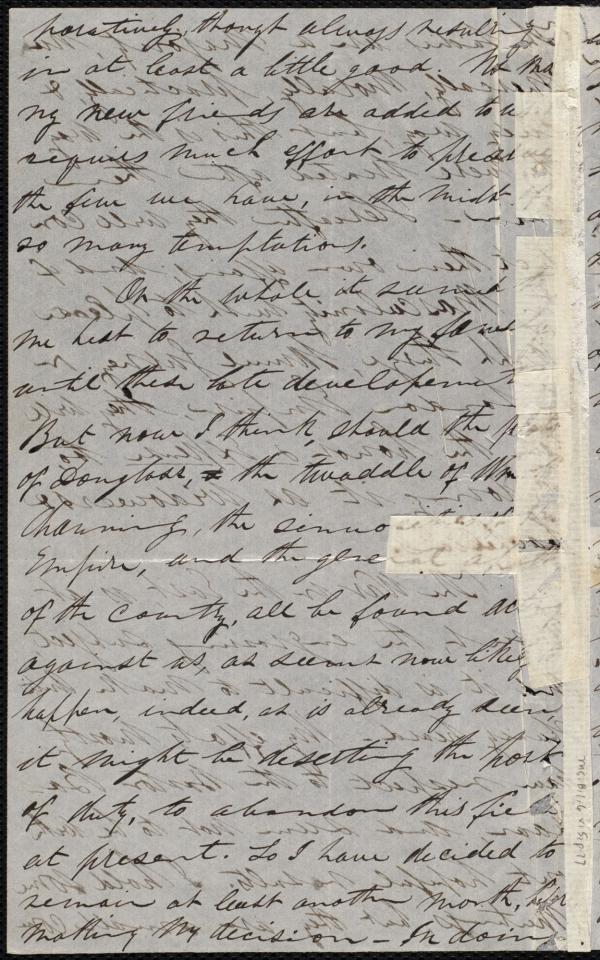 paratively, though always resulting
in at least a little good. No ma
ny new friends are added to us
requires much effort to preser
the few we have, in the midst
so many temptations.
On the whole it seemed
me best to return to my farm
until these late developement
But now I think, should the p
of Douglass, the twaddle of Wm
Channing, the
Empire, and the gene
of the country, all be found ac
against us, as seems now likely
happen, indeed, as is already seen,
it might be deserting the post
of duty, to abandon this fiel
at present. So I have decided to
remain at least another month, before
making my decision - In doing